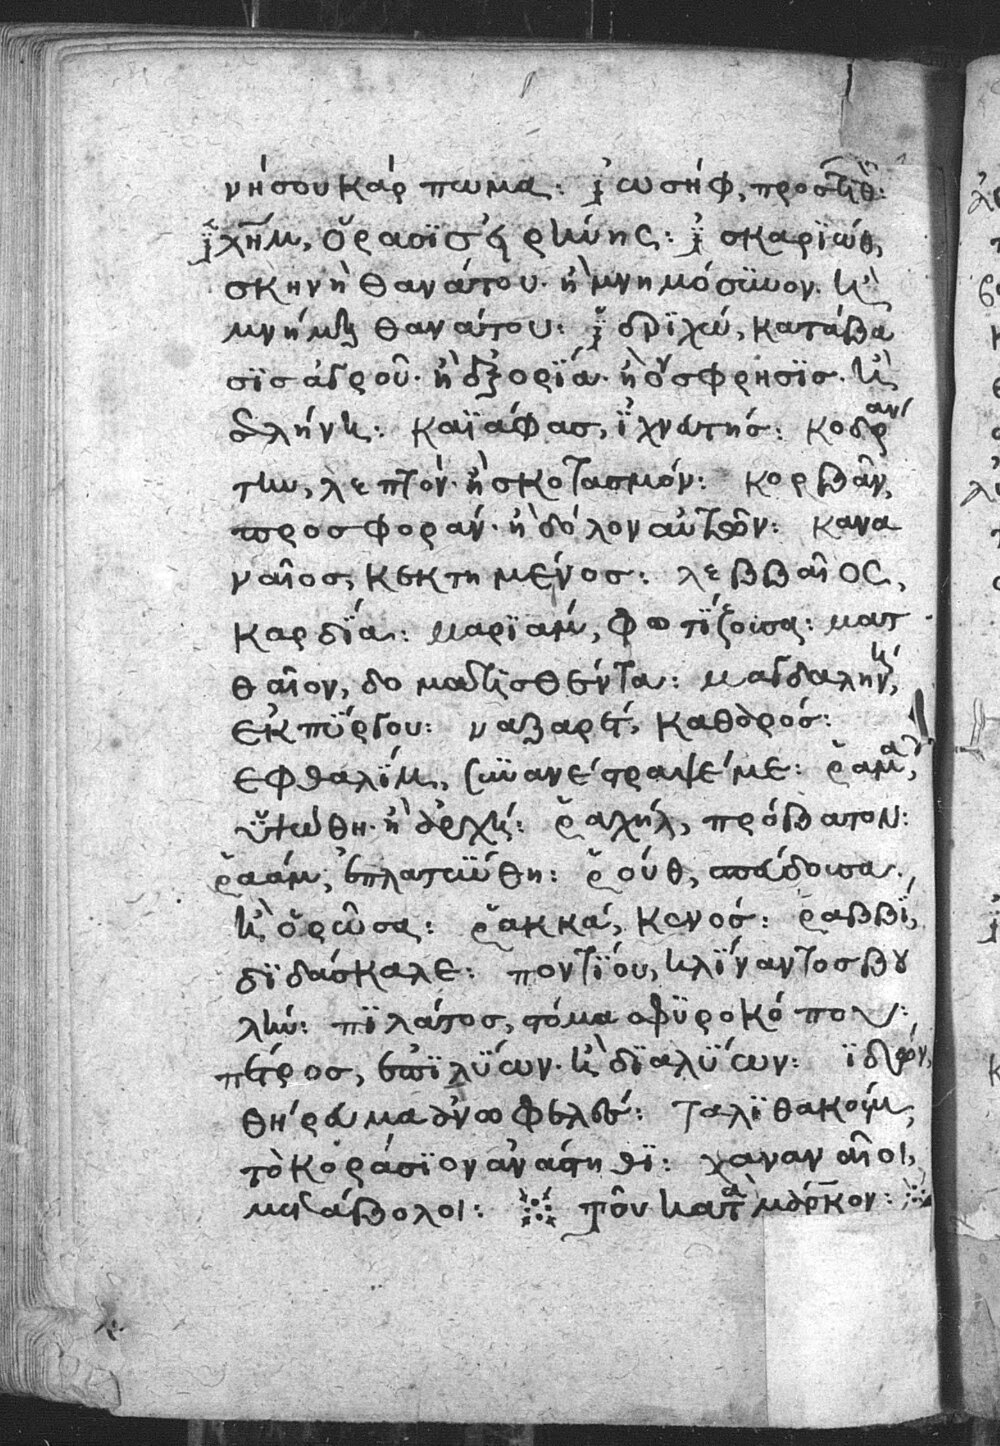 νήσου κάρπωμα: ἰωσήφ, προστιθ:
ἰλῆμ, ὅρασϊσ εἰρήνης: ἰσκαριώθ,
σκηνὴ θανάτου· ἢ μνημόσυνον· κὶ
μνήμη θανάτου: ἰεριχώ, κατάβα
σϊσ ἁδροῦ· ἢ ἐξορϊά· ἢ ὄσφρησϊσ· κὶ
σελήνη: καϊάφασ, ἰχνωτήσ: κοδραν
την, λεπτόν· ἢ σκοτασμόν: κορβᾶν,
προσφοράν· ἢ δόλον αὐτῶν: κανα
ναῖοσ, κεκτημένοσ: λεββαῖος,
καρδία: μαρϊάμ, φωτίζουσα: ματ
θαῖον, δοματισθέντα: μαγδαληνὴ,
ἐκ πύργου: ναζαρετ, καθαρόσ:
εφθαλϊμ, συνανέτραψέ με: ῥαμᾶ,
ὑψώθη· ἢ ἀρχὴ: ῥαχήλ, πρόβατον:
ῥαάμ, ἐπλατύνθη: ῥούθ, σπεύδουσα·
κὶ ὁρῶσα: ῥακκά, κενόσ: ῥαββϊ,
δϊδάσκαλε: ποντϊου, κλίναντοσ βου
λήν: πϊλάτοσ, στόμα σφυροκόπον:
πέτροσ, ἐπιλύων· κὶ διαλύων:
θήραμα ἀνωφελὲσ: ταλϊθακοὺμ,
τὸ κοράσϊον ἀνάστηθϊ: χαναναῖοι,
μετάβολοι: τῶν κατὰ μάρκον: